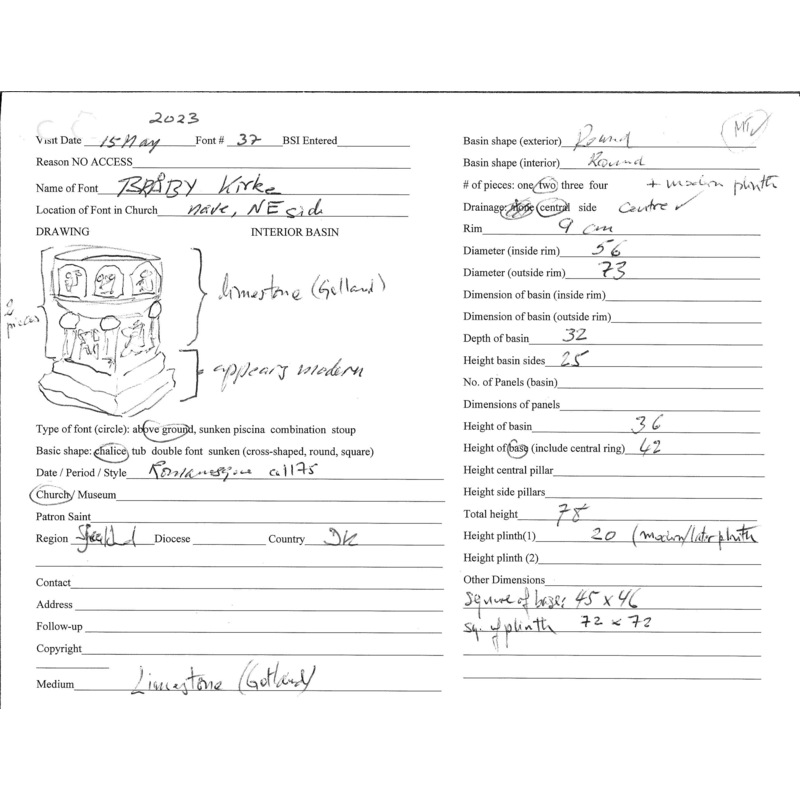 2023
Visit Date 15 May Font # 37 BSI Entered
Reason NO ACCESS
Name of Font BRØBY Kirke
Location of Font in Church nave, NE side
DRAWING INTERIOR BASIN
2 pieces
limestone (Gotland)
appears modern
Type of font (circle): above ground, sunken piscina combination stoup
Basic shape: chalice, tub double font sunken (cross-shaped, round, square)
Date / Period / Style Romanesque ca 1175
Church / Museum
Patron Saint
Region Diocese Country DK
Contact
Address
Follow-up
Copyright
Medium Limestone (Gotland)
Basin shape (exterior) Round
Basin shape (interior) Round
# of pieces: one two three four + modern plinth
Drainage: none central side centre ✓
Rim 9 cm
Diameter (inside rim) 56
Diameter (outside rim) 73
Dimension of basin (inside rim)
Dimension of basin (outside rim)
Depth of basin 32
Height basin sides 25
No. of Panels (basin)
Dimensions of panels
Height of basin 36
Height of base (include central ring) 42
Height central pillar
Height side pillars
Total height 78
Height plinth(1) 20 (modern/later plinth
Height plinth (2)
Other Dimensions
square of base: 45 x 46
sq. of plinth 72 x 72